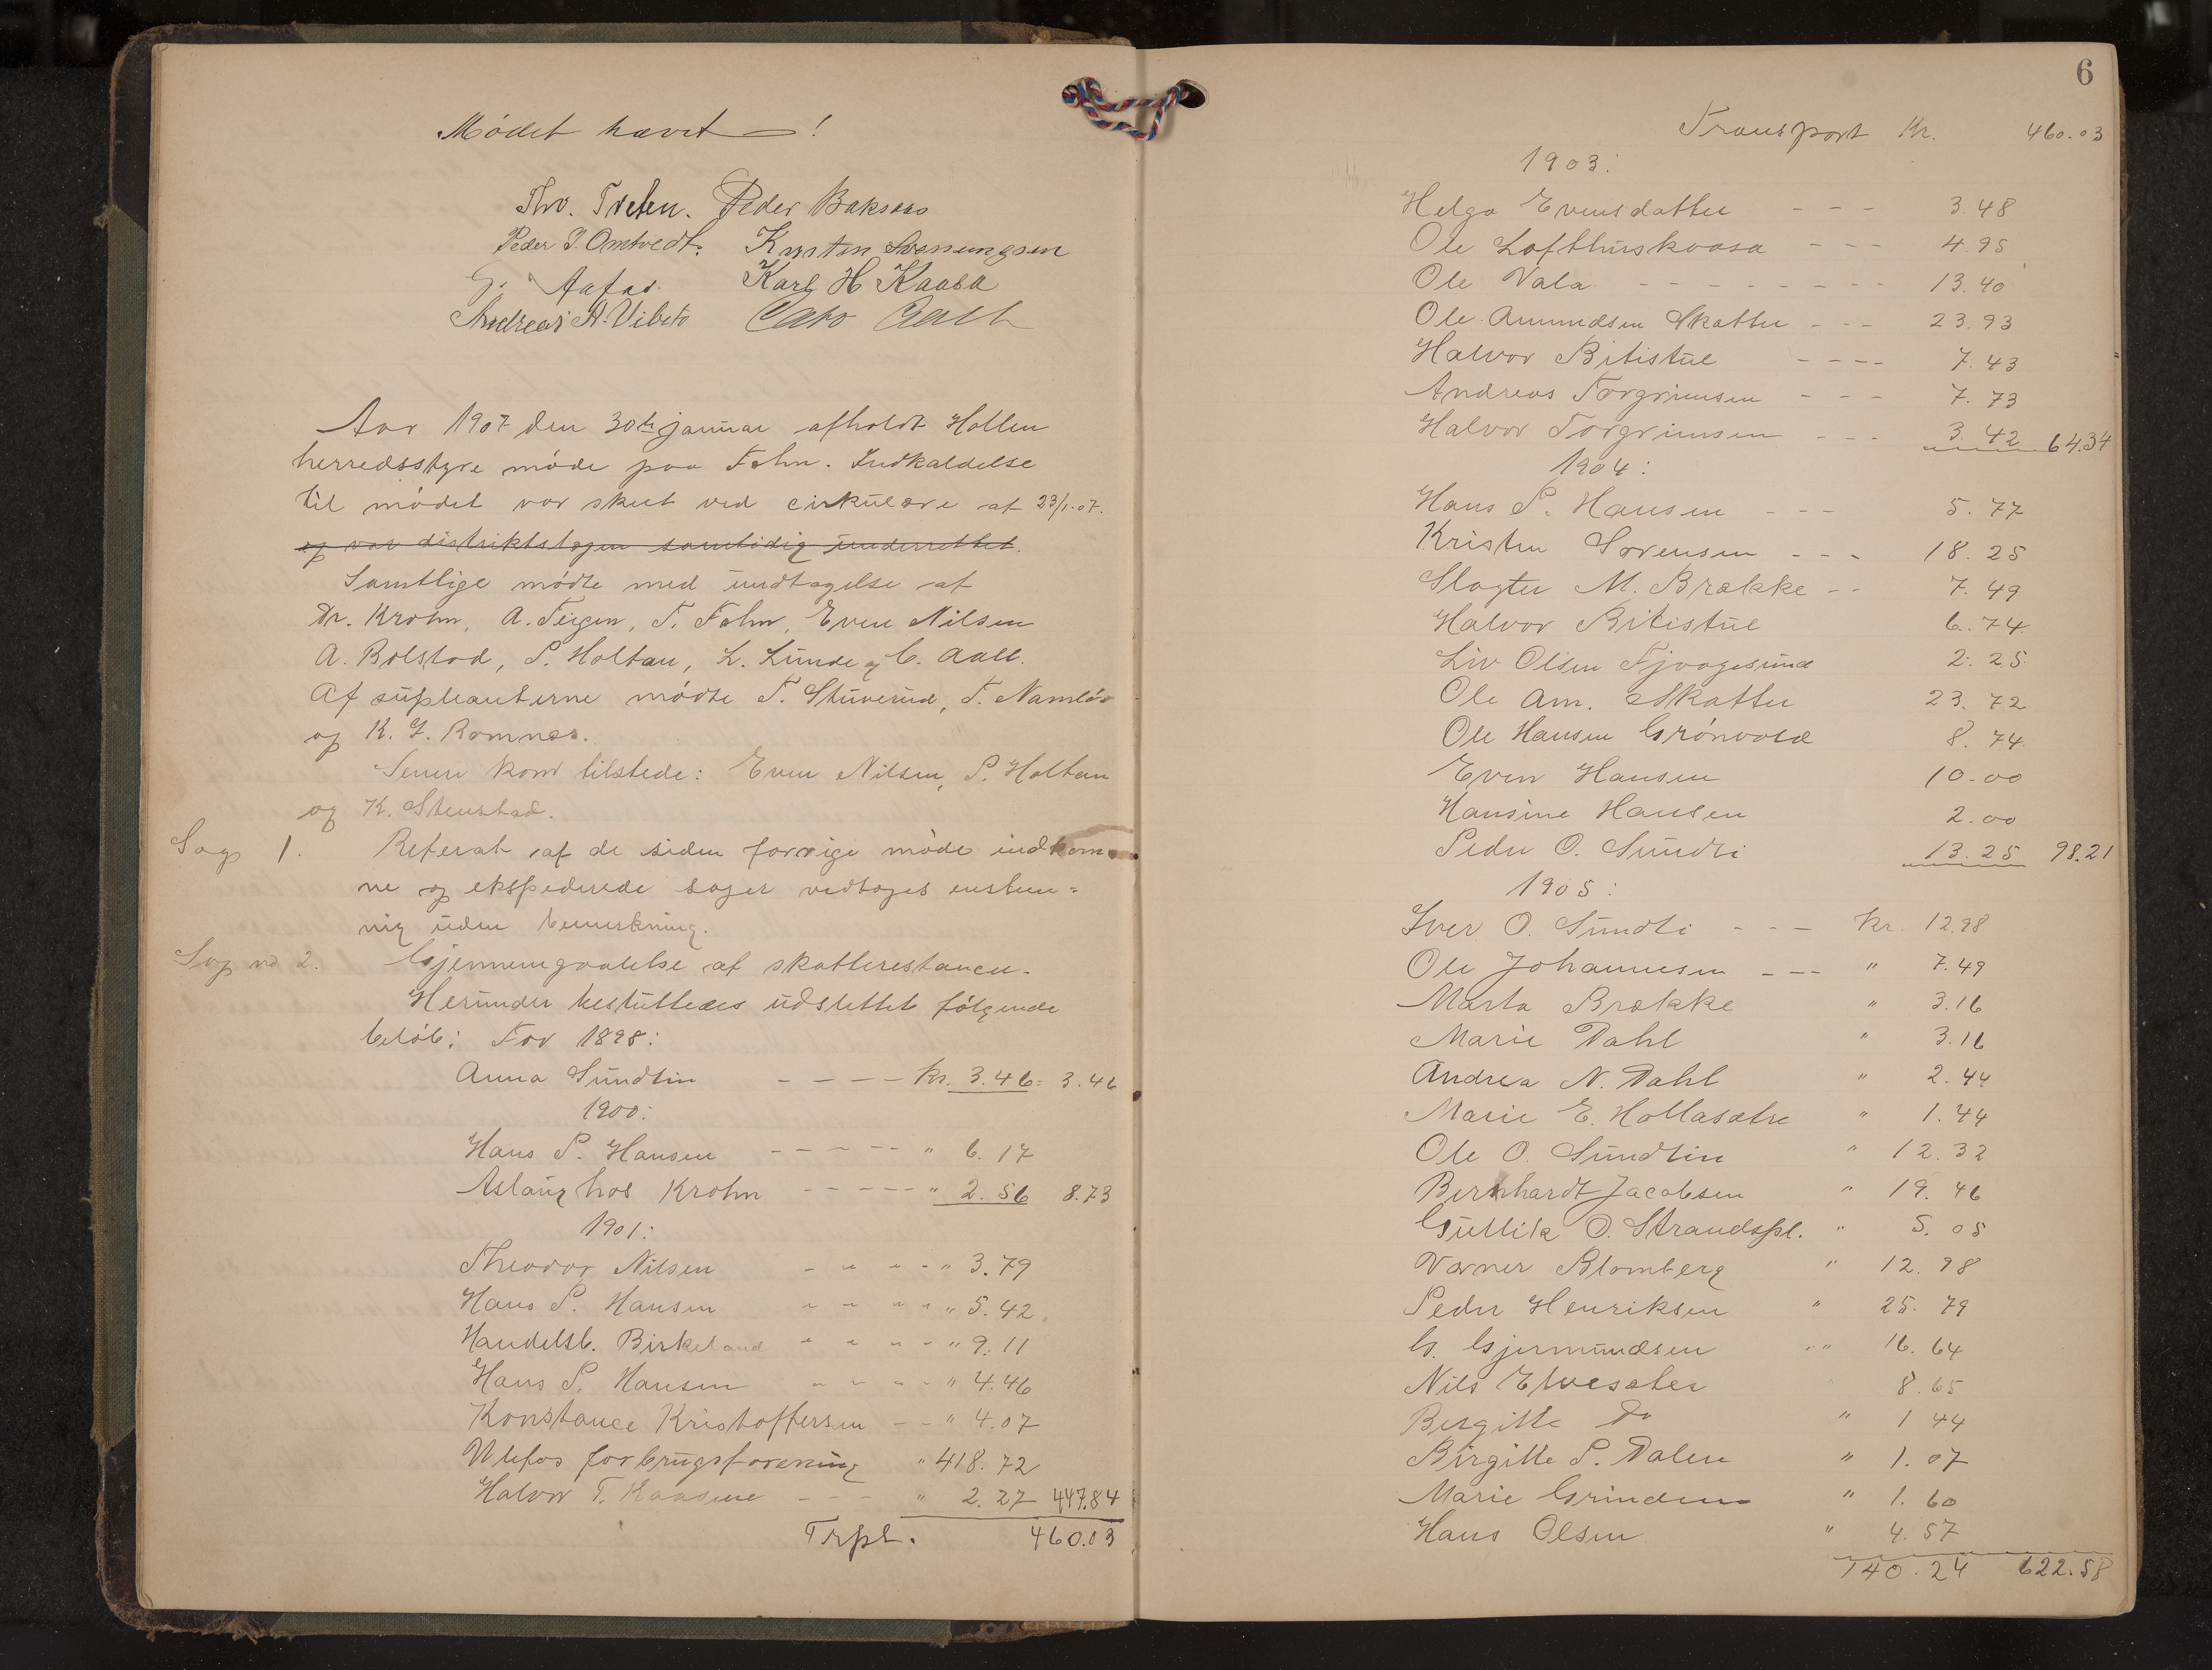 Mødet hævet!
Thv. Træen. Peder Baksaas
Peder P. Omtvedt. Kristen Svenungsen
G. Aafos. Karl H Kaasa
Andreas A. Vibeto Cato Aall
Aar 1907 den 30te januar afholdt Hollen
herredsstyre møde paa Fehn. Indkaldelse
til mødet var skeet ved cirkulære af 23/1.07.
og var distriktslægen samtidig underrettet.
Samtlige mødte med undtagelse af
Dr. Krohn, A. Teigen, T. Fehn, Even Nilsen
A. Bolstad, P. Holtan, L. Lunde og C. Aall.
Af supleanterne mødte T. Stuverud, T. Namløs
og K. G. Romnæs.
Senere kom tilstede: Even Nilsen, P. Holtan
og K. Stenstad.
Sag 1. Referat af de siden forrige møde indkom-
ne og ekspederede sager vedtoges enstem=
mig uden bemerkning.
Sag no 2. Gjennemgaaelse af skatterestancer.
Herunder besluttedes udslettet følgende
beløb: For 1898:
Anna Sundtin - - - - Kr. 3.46 = 3.46
1900:
Hans P. Hansen - - - - - " 6.17
Aslaug hos Krohn - - - - - " 2.56 8.73
1901:
Theodor Nilsen - - - - " 3.79
Hans P. Hansen - - - - " 5.42
Handelsb. Birkeland - - - - " 9.11
Hans P. Hansen - - - - " 4.46
Konstance Kristoffersen - - " 4.07
Ulefos forbrugsforening " 418.72
Halvor T. Kaasene - - - " 2.27 447.84
Trpt. 460.03
6
Transport Kr. 460.03
1903:
Helga Evensdatter - - - 3.48
Ole Lofthuskaasa - - - 4.95
Ole Vala - - - - - - - - 13.40
Ole Amundsen Skatter - - - 23.93
Halvor Bitistul - - - - 7.43
Andreas Torgrimsen - - - 7.73
Halvor Torgrimsen - - - 3.42 64.34
1904:
Hans P. Hansen - - - 5.77
Kristen Sørensen - - - 18.25
Slagter M. Brække - - 7.49
Halvor Bitistul 6.74
Liv Olsen Fjaagesund 2.25
Ole Am. Skatter 23.72
Ole Hansen Grønvold 8.74
Even Hansen 10.00
Hansine Hansen 2.00
Peder O. Sundti 13.25 98.21
1905:
Iver O. Sundti - - - Kr. 12.98
Ole Johannesen - - - " 7.49
Marta Brække " 3.16
Marie Dahl " 3.16
Andrea N. Dahl " 2.44
Marie E. Hollasætre " 1.44
Ole O. Sundtin " 12.32
Bernhardt Jacobsen " 19.46
Gullik O. Strandspl. " 5.05
Varner Blomberg " 12.98
Peder Henriksen " 25.79
G. Gjermundsen " " 16.64
Nils Elvesæter 8.65
Birgitte Do " 1 44
Birgitte P. Dalen " 1.07
Marie Grinden " 1.60
Hans Olsen " 4.57
140.24 622.58